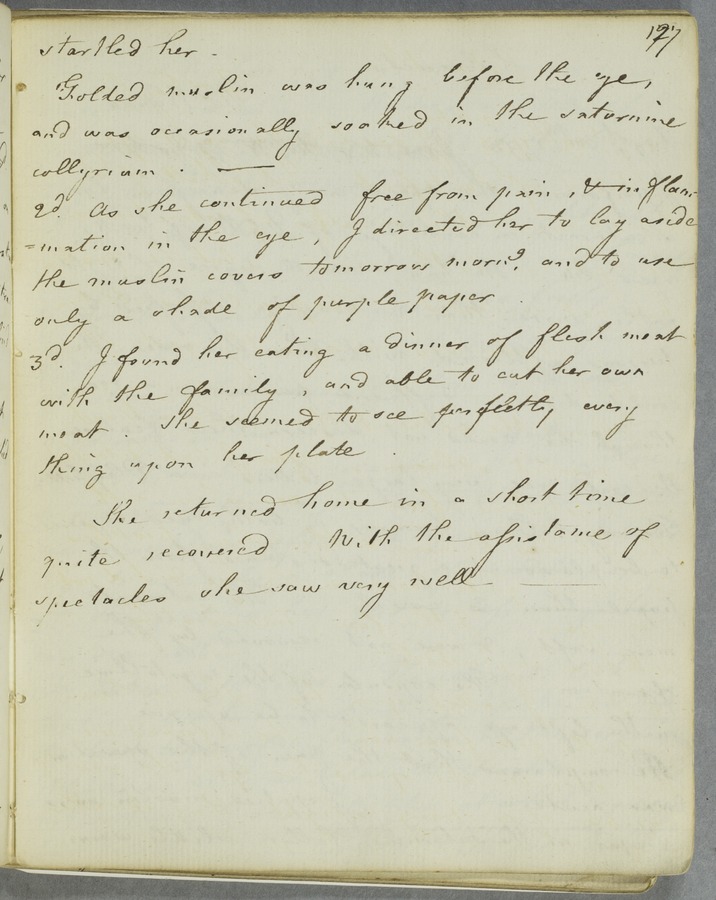 127
startled her.
Folded muslin was hung before the eye,
and was occasionally soaked in the saturnine
collyrium. —
2d. As she continued free from pain, & inflam-
=mation in the eye, I directed her to lay aside
the muslin covers tomorrow morng, and to use
only a shade of purple paper.
3d. I found her eating a dinner of flesh meat
with the family, and able to cut her own
meat. She seemed to see perfectly every
thing upon her plate.
She returned home in a short time
quite recovered With the assistance of
spectacles she saw very well —